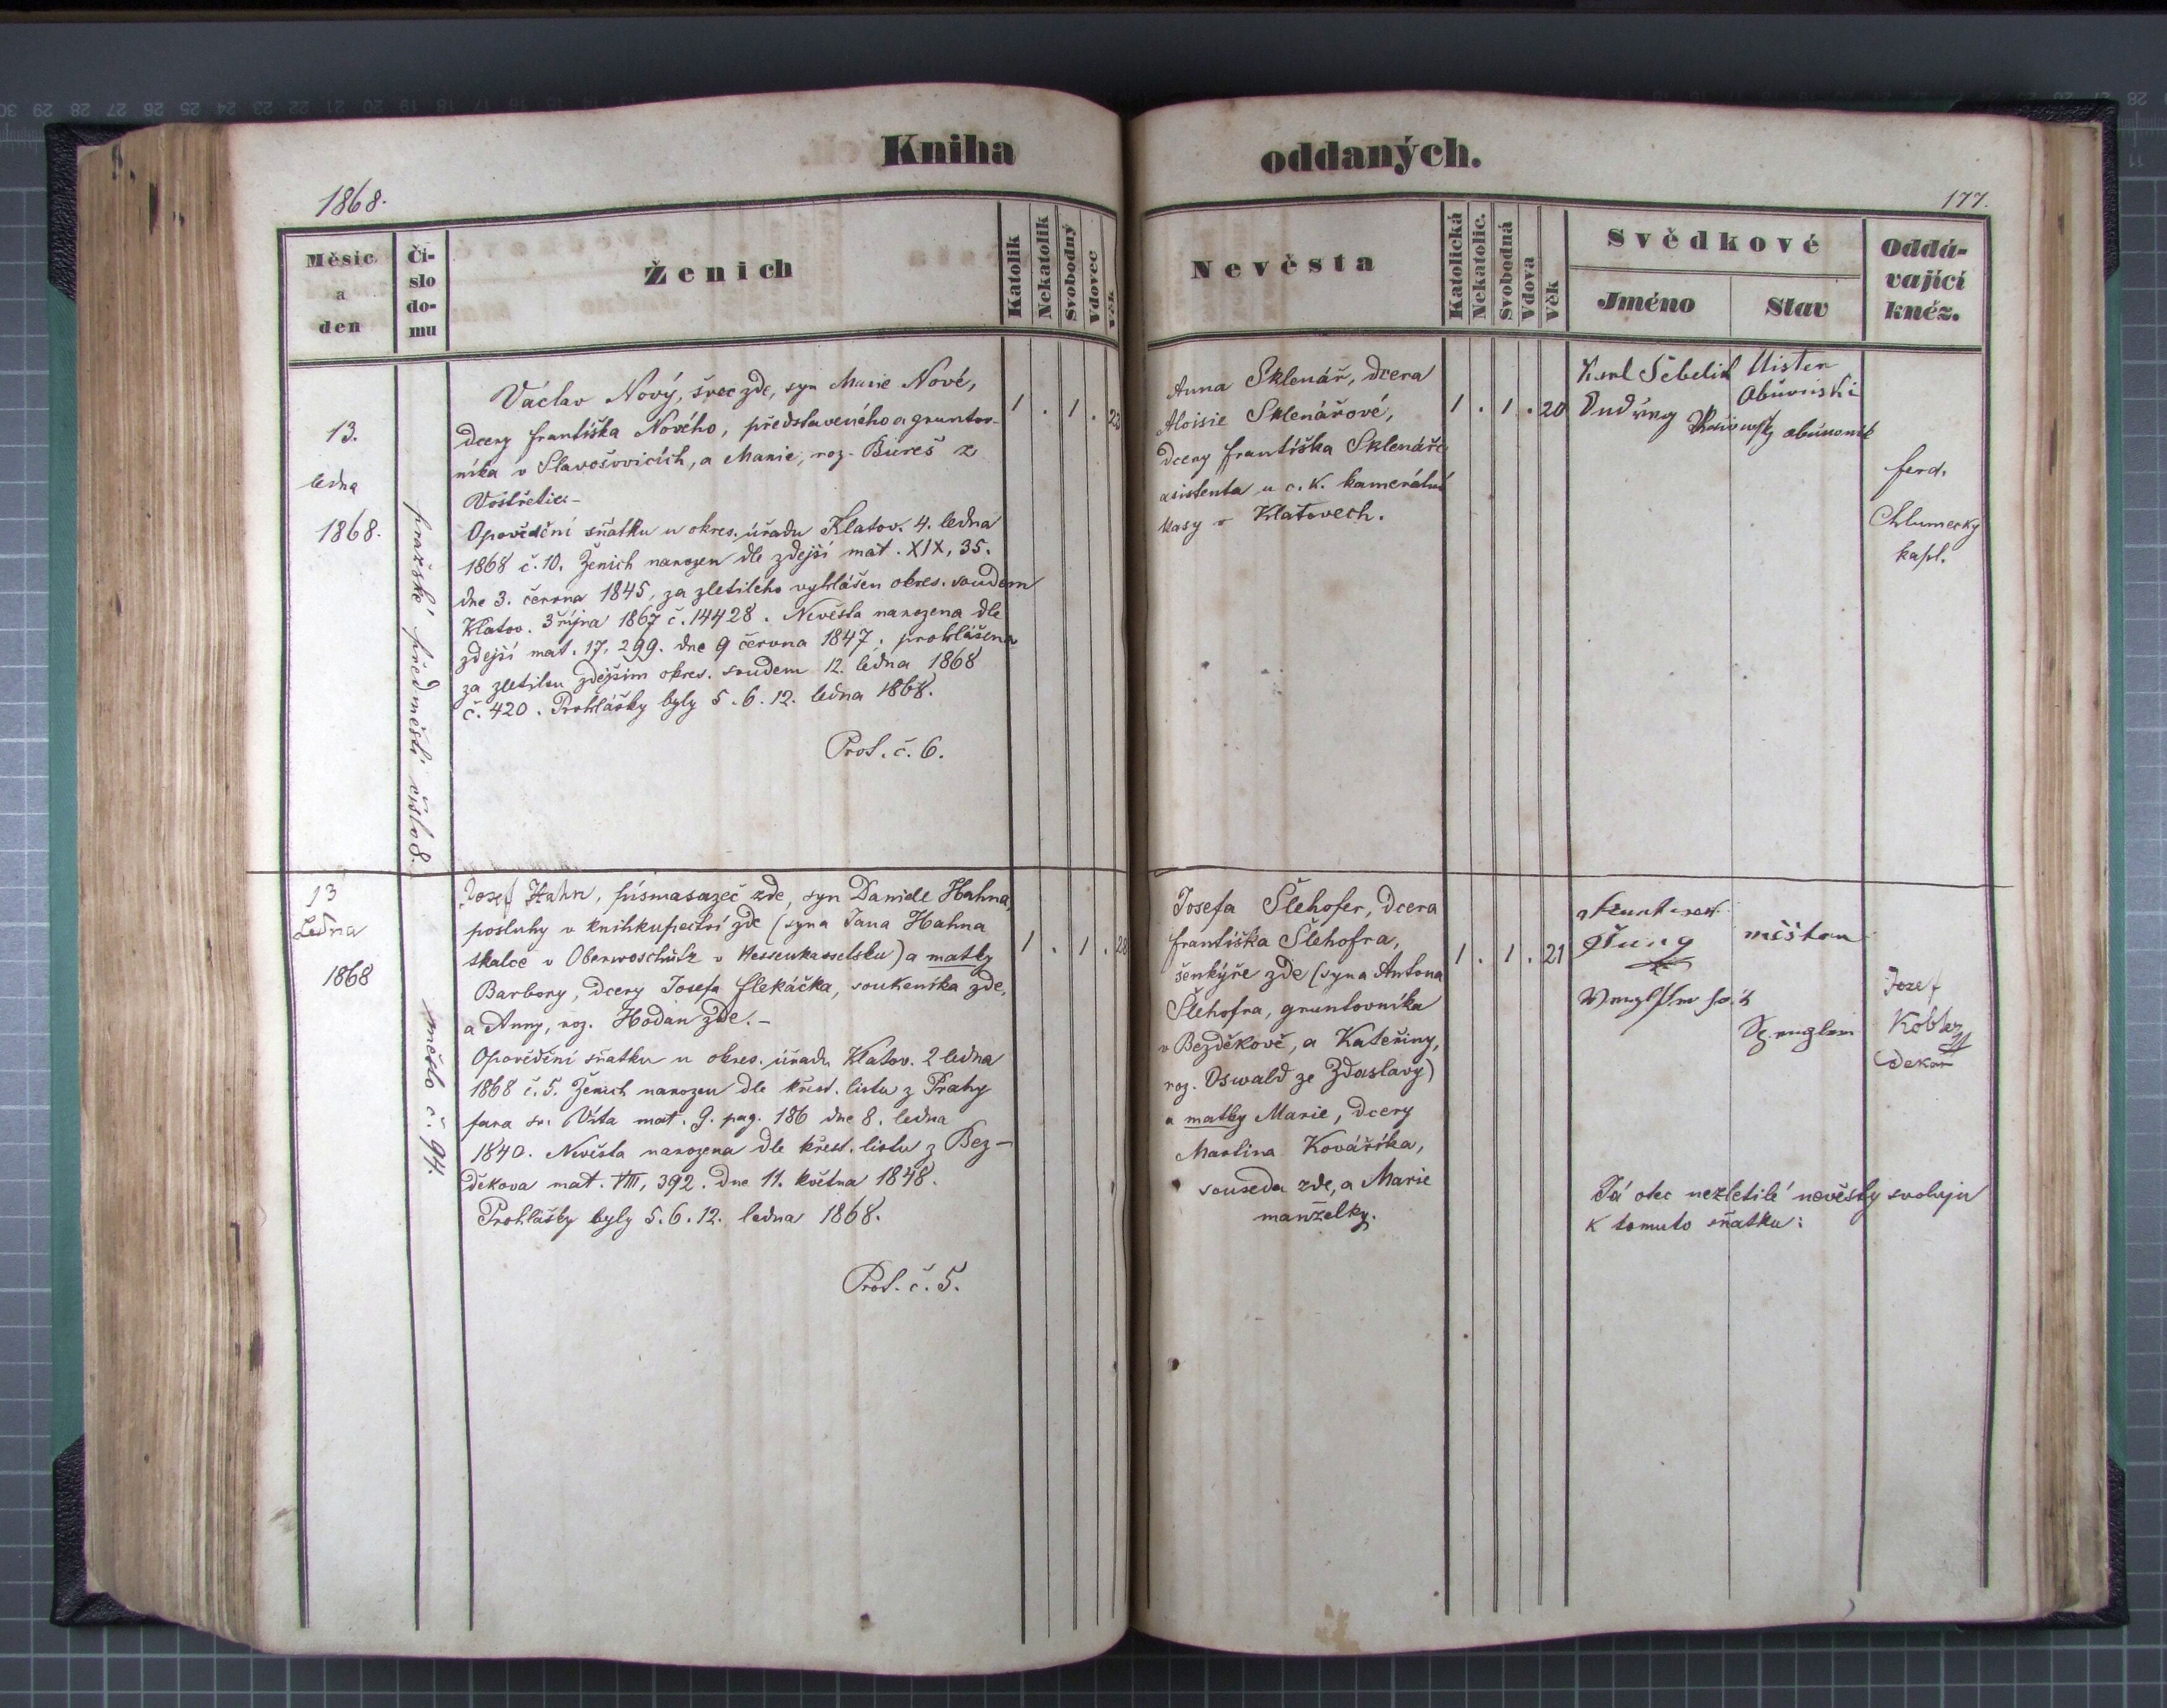 Kniha oddaných.
1868.
177.
Měsíc a den
Čí-
slo
do-
mu
Ženich
Katolík
Nekatolík
Svobodný
Vdovec
Věk
Nevěsta
Katolická
Nekatolic.
Svobodná
Vdova
Věk
Svědkové
Jméno
Stav
Oddá-
vající
kněz.
13.
ledna
1868.
pražské předměstí číslo 8.
Václav Nový, švec zde, syn Marie Nové,
dcery Františka Nového, představeného a gruntov-
níka v Slavošovicích, a Marie, roz. Bureš z
Vostřetic.-
Opovědění sňatku u okres. úřadu Klatov. 4. ledna
1868 č. 10. Ženich narozen dle zdejší mat. XIX, 35.
dne 3. června 1845, za zletilého vyhlášen okres. soudem
Klatov. 3 října 1867 č. 14428. Nevěsta narozena dle
zdejší mat. 17. 299. dne 9 června 1847. prohlášena
za zletilou zdejším okres. soudem 12. ledna 1868
č. 420. Prohlášky byly 5. 6. 12. ledna 1868.
Prot. č. 6.
1 . 1 .
Anna Sklenář, dcera
Aloisie Sklenářové,
dcery Františka Sklenáře
asistenta u c. k. kamerální
kasy v Klatovech.
1 . 1 . 20
Karl Šebelik
ferd.
Chlumecky
kapl.
13
Ledna
1868
město č. 94.
Josef Hahn, písmasazeč zde, syn Daniele Hahna,
posluhy v knihkupectví zde (syna Jana Hahna
tkalce v Oberwoschütz v Hessenkasselsku) a matky
Barbory, dcery Josefa Flekáčka, soukeníka zde,
a Anny, roz. Hodan zde.-
Opovědění sňatku u okres. úřadu Klatov. 2 ledna
1868 č. 5. Ženich narozen dle křest. listu z Prahy
fara sv. Víta mat. 9. pag. 186 dne 8. ledna
1840. Nevěsta narozena dle křest. listu z Bez-
děkova mat. VIII, 392. dne 11. května 1848.
Prohlášky byly 5. 6. 12. ledna 1868.
Prot. č. 5.
1 . 1 . 28
Josefa Šlehofer, dcera
Františka Šlehofra,
šenkýře zde (syna Antona
Šlehofra, gruntovníka
v Bezděkově, a Kateřiny,
roz. Oswald ze Zdaslavy)
a matky Marie, dcery
Martina Kováříka,
souseda zde, a Marie
manželky.
1 . 1 . 21
Jung
měšťan
Josef
Köbler
Děkan
Já otec nezletilé nevěsty svoluju
k tomuto sňatku: